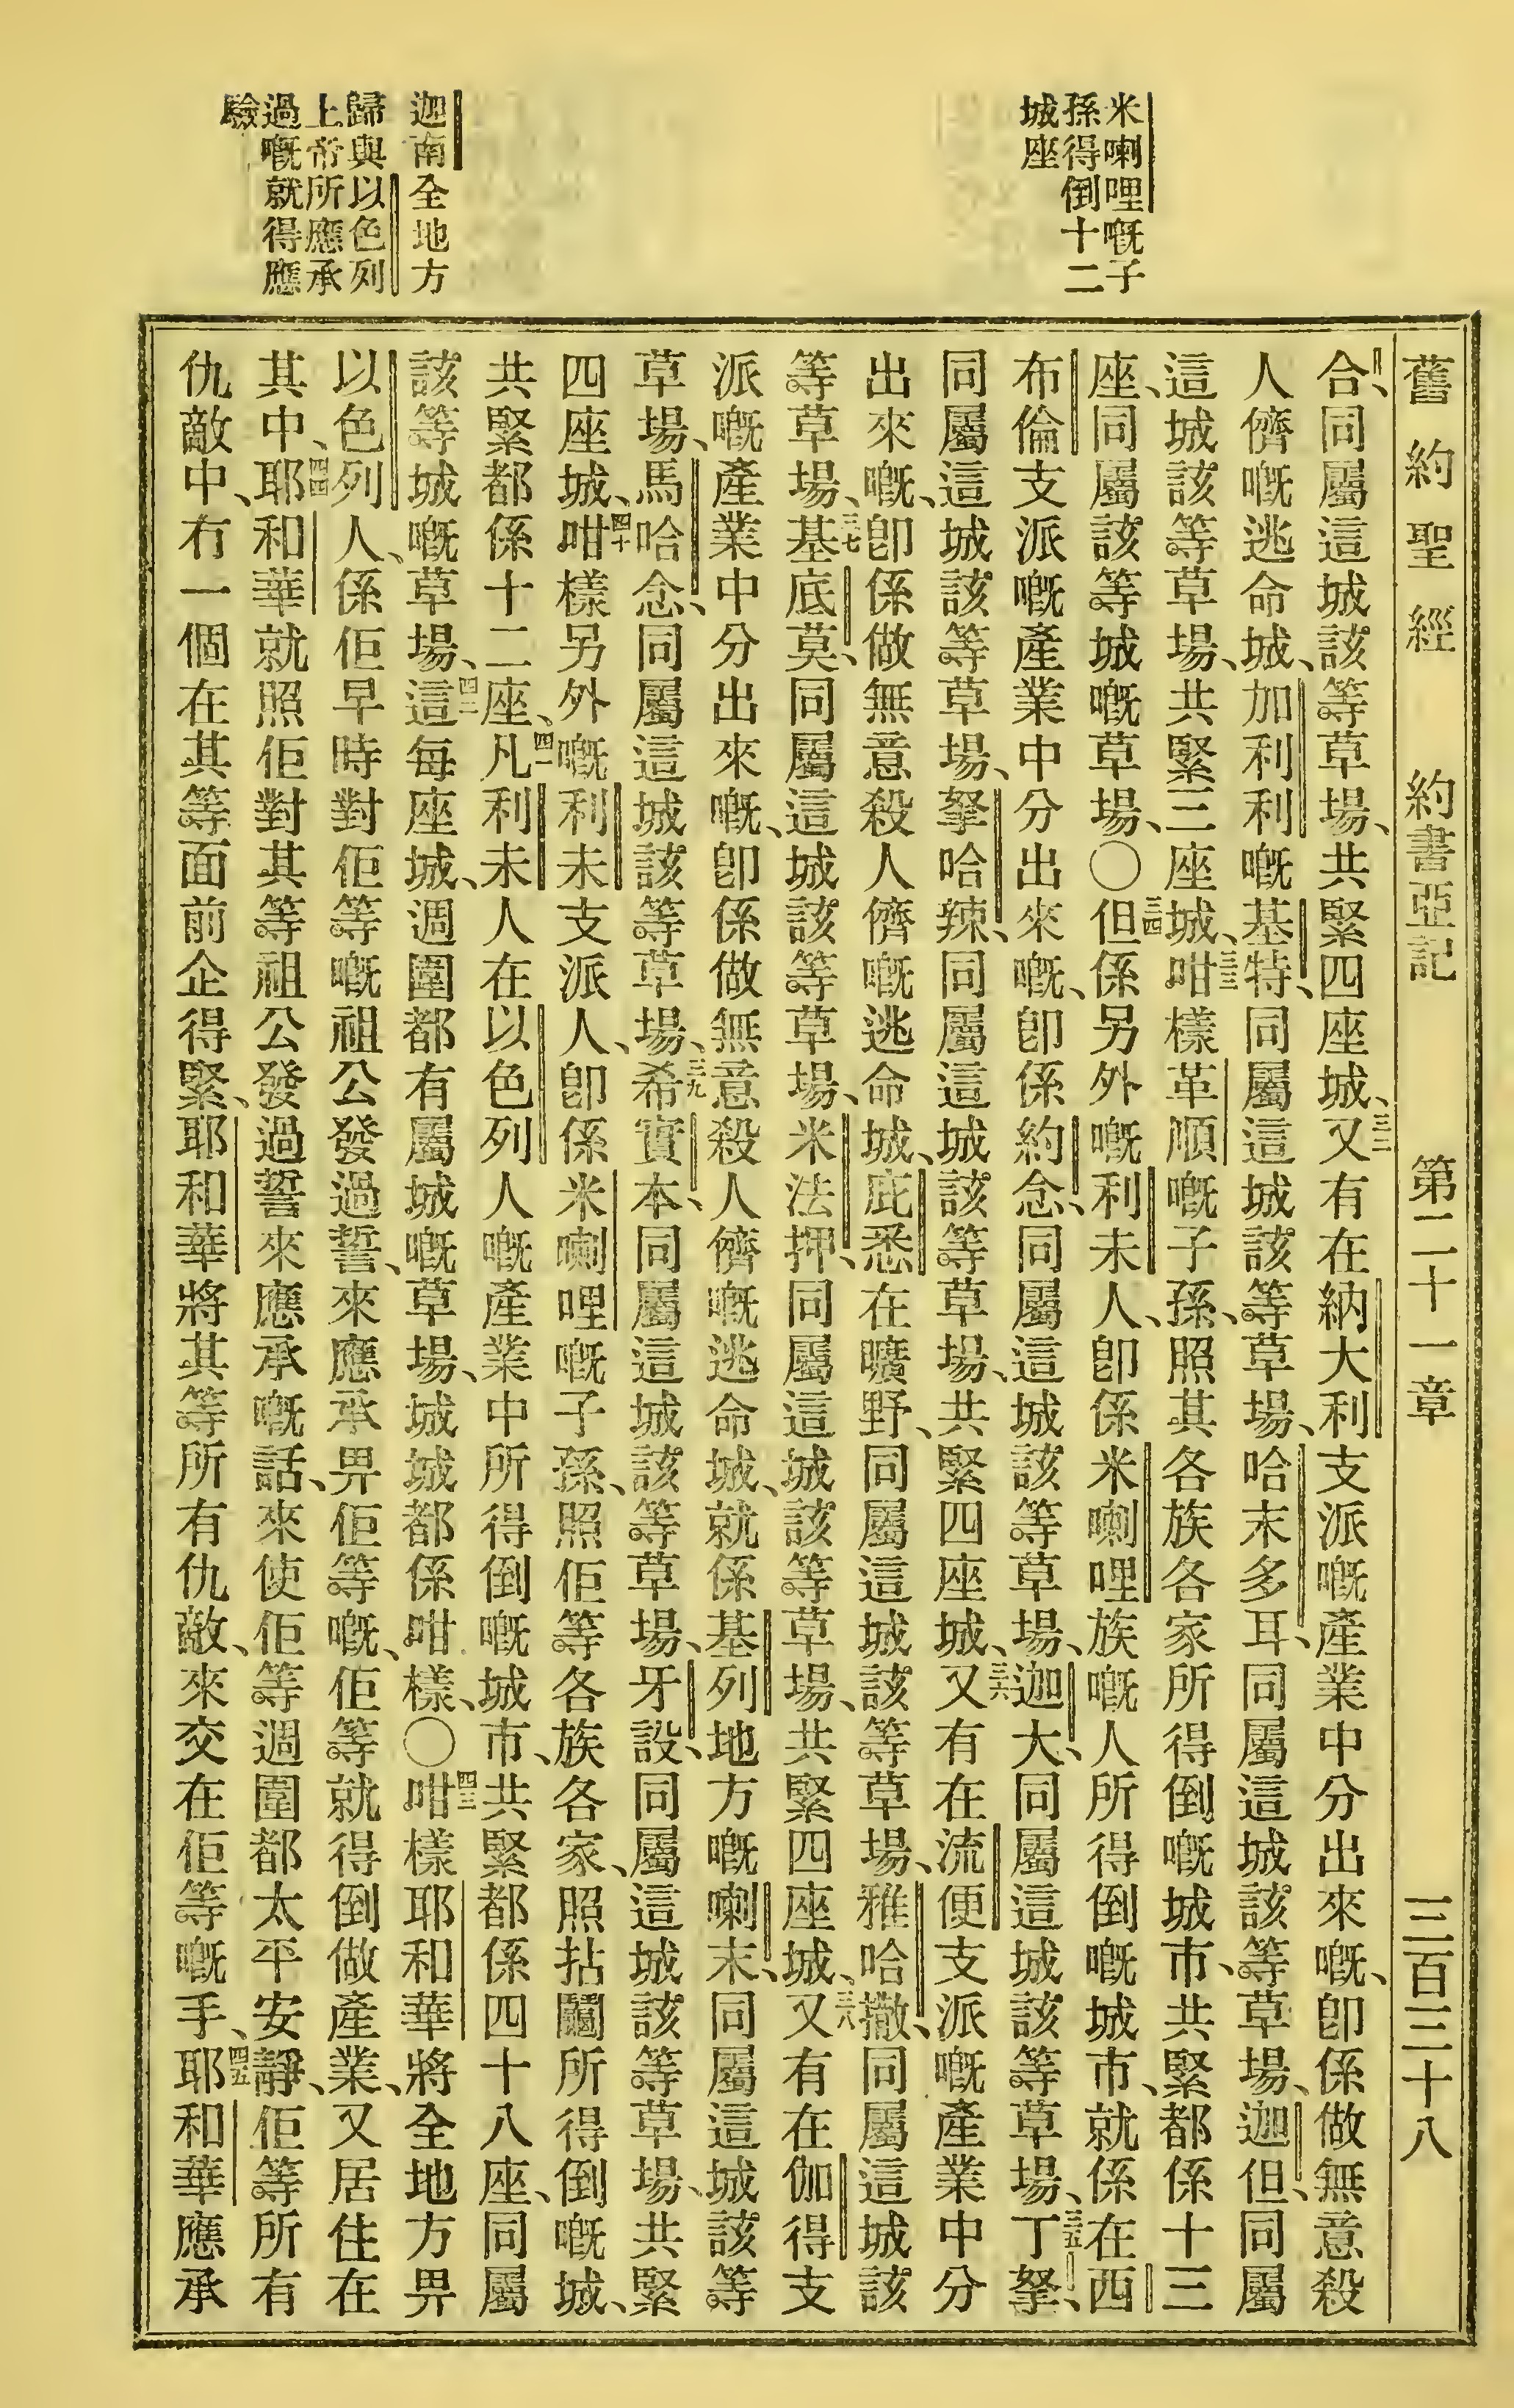 舊約聖經　約書亞記　第二十一章　三百三十八
米喇哩嘅子
孫得倒十二
城座
迦南全地方
歸與以色列
上帝所應承
過嘅就得應
驗
合、同屬這城該等草場、共緊四座城、三二又有在納大利支派嘅產業中分出來嘅、卽係做無意殺
人儕嘅逃命城、加利利嘅基特、同屬這城該等草場、哈末多耳、同屬這城該等草場、迦但、同屬
這城該等草場、共緊三座城、三三咁樣革順嘅子孫、照其各族各家所得倒嘅城市、共緊都係十三
座、同屬該等城嘅草場、〇三四但係另外嘅利未人、卽係米喇哩族嘅人所得倒嘅城市、就係在西
布倫支派嘅產業中分出來嘅、卽係約念、同屬這城該等草場、迦大、同屬這城該等草場、三五丁拏、
同屬這城該等草場、拏哈辣、同屬這城該等草場、共緊四座城、三六又有在流便支派嘅產業中分
出來嘅、卽係做無意殺人儕嘅逃命城、庇悉在曠野、同屬這城該等草場、雅哈撒、同屬這城該
等草場、三七基底莫、同屬這城該等草場、米法押、同屬這城該等草場、共緊四座城、三八又有在伽得支
派嘅產業中分出來嘅、卽係做無意殺人儕嘅逃命城、就係基列地方嘅喇末、同屬這城該等
草場、馬哈念、同屬這城該等草場、三九希實本、同屬這城該等草場、牙設、同屬這城該等草場、共緊
四座城、四十咁樣另外嘅利未支派人、卽係米喇哩嘅子孫、照佢等各族各家、照拈鬮所得倒嘅城、
共緊都係十二座、四一凡利未人在以色列人嘅產業中所得倒嘅城市、共緊都係四十八座、同屬
該等城嘅草場、四二這每座城、週圍都有屬城嘅草場、城城都係咁樣、〇四三咁樣耶和華將全地方畀
以色列人、係佢早時對佢等嘅祖公發過誓、來應承畀佢等嘅、佢等就得倒做產業、又居住在
其中、四四耶和華就照佢對其等祖公發過誓來應承嘅話、來使佢等週圍都太平安靜、佢等所有
仇敵中、冇一個在其等面前企得緊、耶和華將其等所有仇敵、來交在佢等嘅手、四五耶和華應承